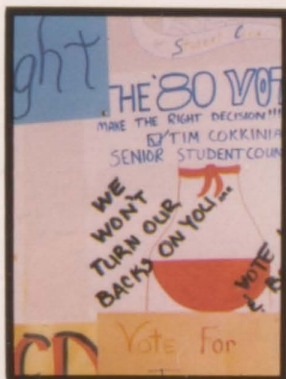 ght
THE '80 VOT
MAKE THE RIGHT DECISION"
TIM COKKINIA
SENIOR STUDENT COUN
WE
WON'T
TURN OUR
BACKS ON YOU...
VOTE
&
Vote For
CD